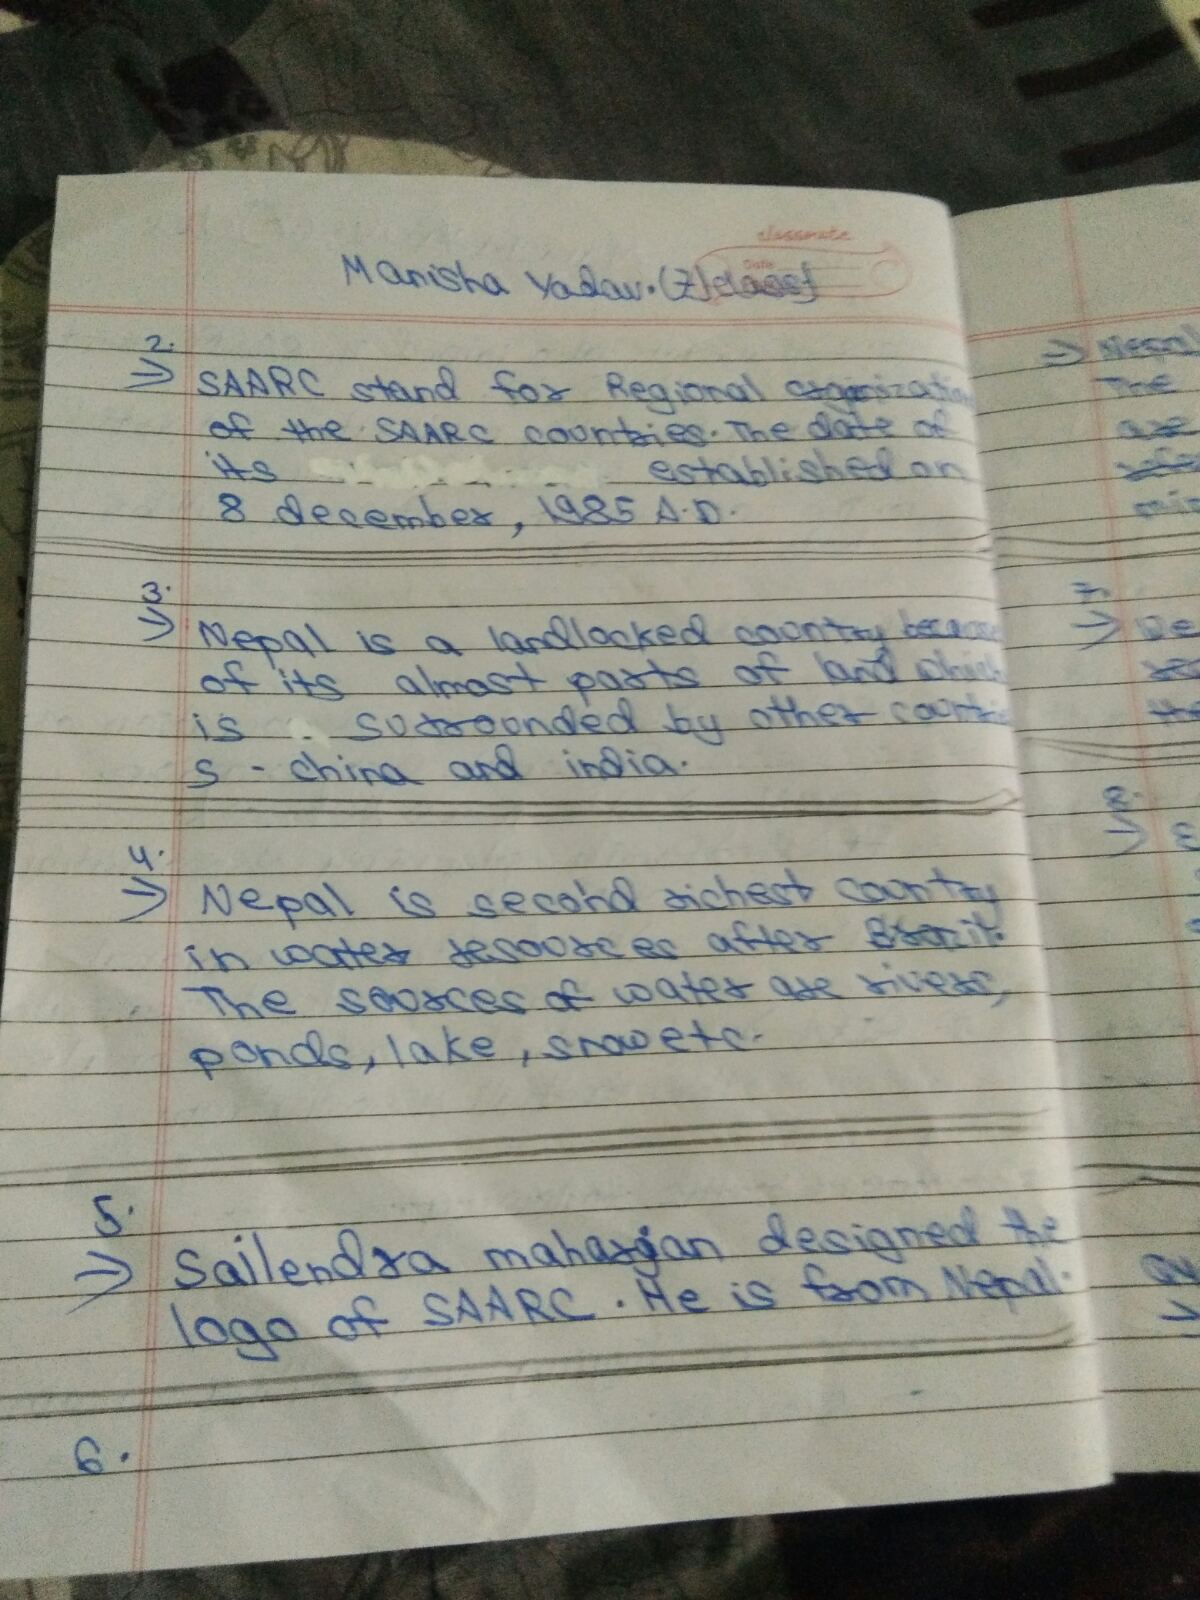 classmate
Date
Manisha Yadav. (7) class
2.
⇒ SAARC stand for Regional organization
of the SAARC countries. The date of
its established on
8 december, 1985 A.D.
3.
⇒ Nepal is a landlocked country because
of its almost parts of land which
is surrounded by other countrie
s - china and india.
4.
⇒ Nepal is second richest country
in water resources after Brazil.
The sources of water are rivers,
ponds, lake, snow etc.
5.
⇒ Sailendra maharjan designed the
logo of SAARC. He is from Nepal.
6.
⇒ Nepal
The
are
min
7.
⇒ De
8.
⇒